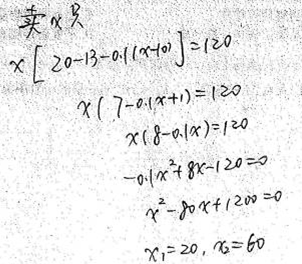 卖x只
x[20-13-0.1(x-10)]=120
x(7-0.1x+1)=120
x(8-0.1x)=120
-0.1x²+8x-120=0
x²-80x+1200=0
x₁=20, x₂=60